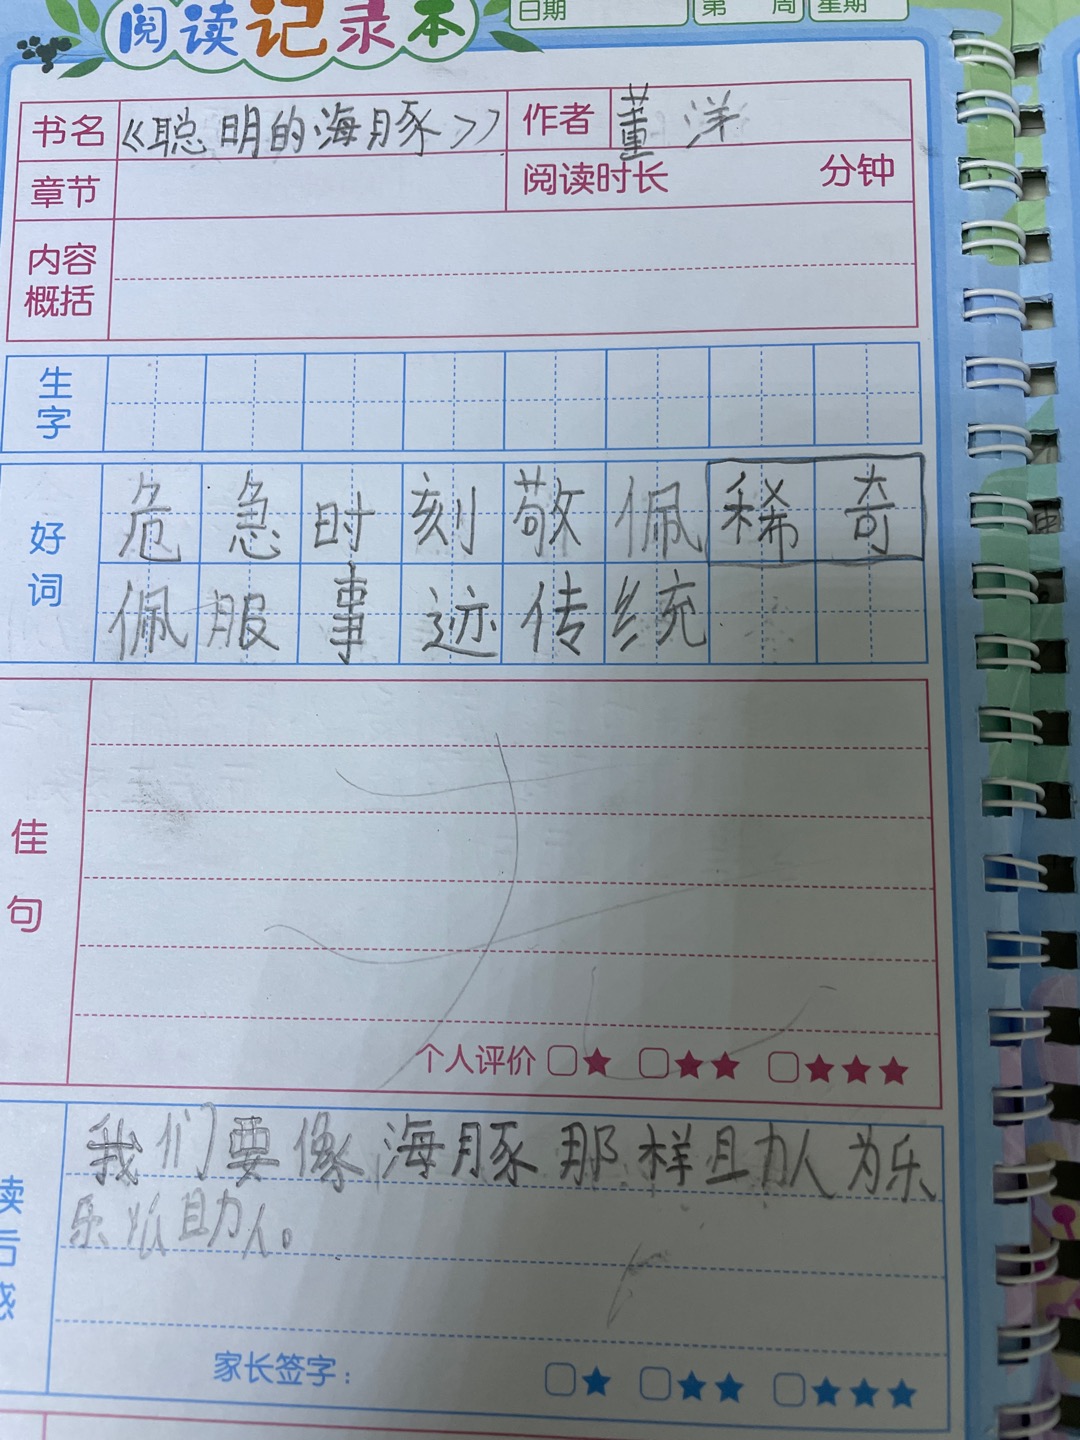 阅读记录本
日期 第 周 星期
书名 《聪明的海豚》 作者 董洋
章节 阅读时长 分钟
内容
概括
生字
好词
危急时刻敬佩稀奇
佩服事迹传统
佳句
个人评价 ★ ★★ ★★★
读后感
我们要像海豚那样助人为乐
乐以助人。
家长签字: ★ ★★ ★★★